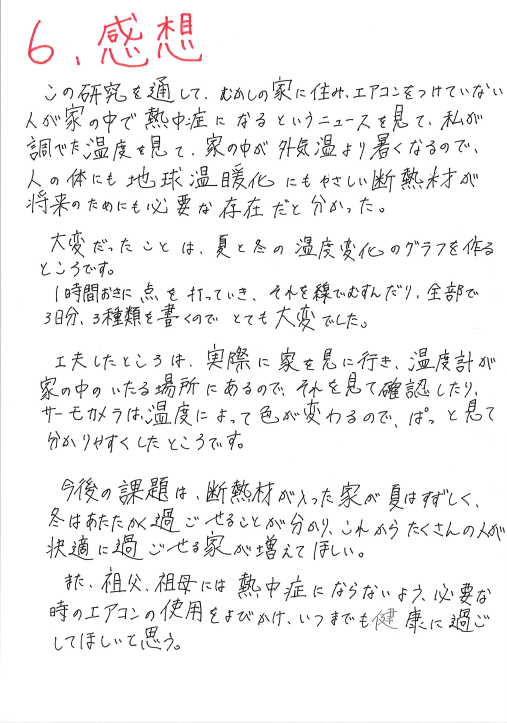 6.感想
この研究を通して、むかしの家に住み、エアコンをつけていない
人が家の中で熱中症になるというニュースを見て、私が
調べた温度を見て、家の中が外気温より暑くなるので、
人の体にも地球温暖化にもやさしい断熱材が
将来のためにも必要な存在だと分かった。
大変だったことは、夏と冬の温度変化のグラフを作る
ところです。
1時間おきに点を打っていき、それを線でむすんだり、全部で
3日分、3種類を書くのでとても大変でした。
工夫したところは、実際に家を見に行き、温度計が
家の中のいたる場所にあるので、それを見て確認したり、
サーモカメラは、温度によって色が変わるので、ぱっと見て
分かりやすくしたところです。
今後の課題は、断熱材が入った家が夏はすずしく、
冬はあたたかく過ごせることが分かり、これからたくさんの人が
快適に過ごせる家が増えてほしい。
また、祖父、祖母には熱中症にならないよう、必要な
時のエアコンの使用をよびかけ、いつまでも健康に過ご
してほしいと思う。